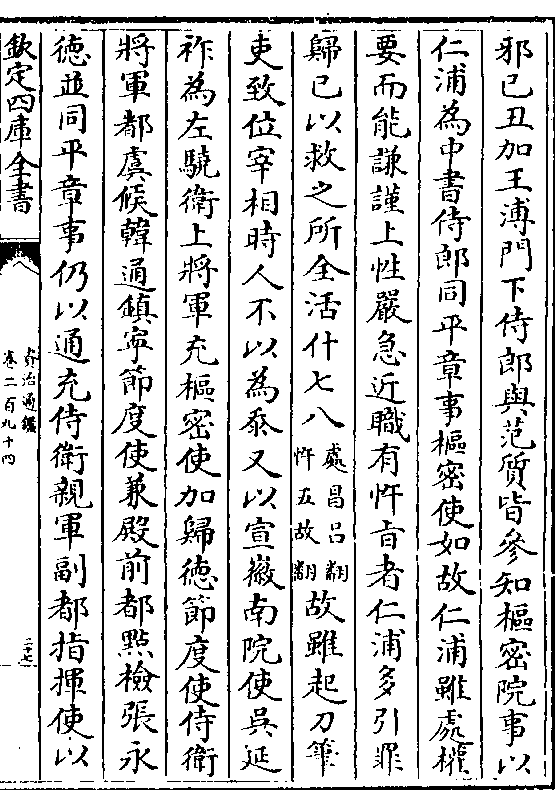 邪己丑加王溥門下侍郎與范質皆參知樞密院事以
仁浦為中書侍郎同平章事樞密使如故仁浦雖處權
要而能謙謹上性嚴急近職有忤旨者仁浦多引罪
歸已以救之所全活什七八處昌呂翻忤五故翻故雖起刀筆
吏致位宰相時人不以為忝又以宣徽南院使吳延
祚為左驍衛上將軍充樞密使加歸德節度使侍衛
將軍都虞候韓通鎮寧節度使兼殿前都㸃檢張永
德並同平章事仍以通充侍衛親軍副都指揮使以
欽定四庫全書
資治通鑑
卷二百九十四
二十七